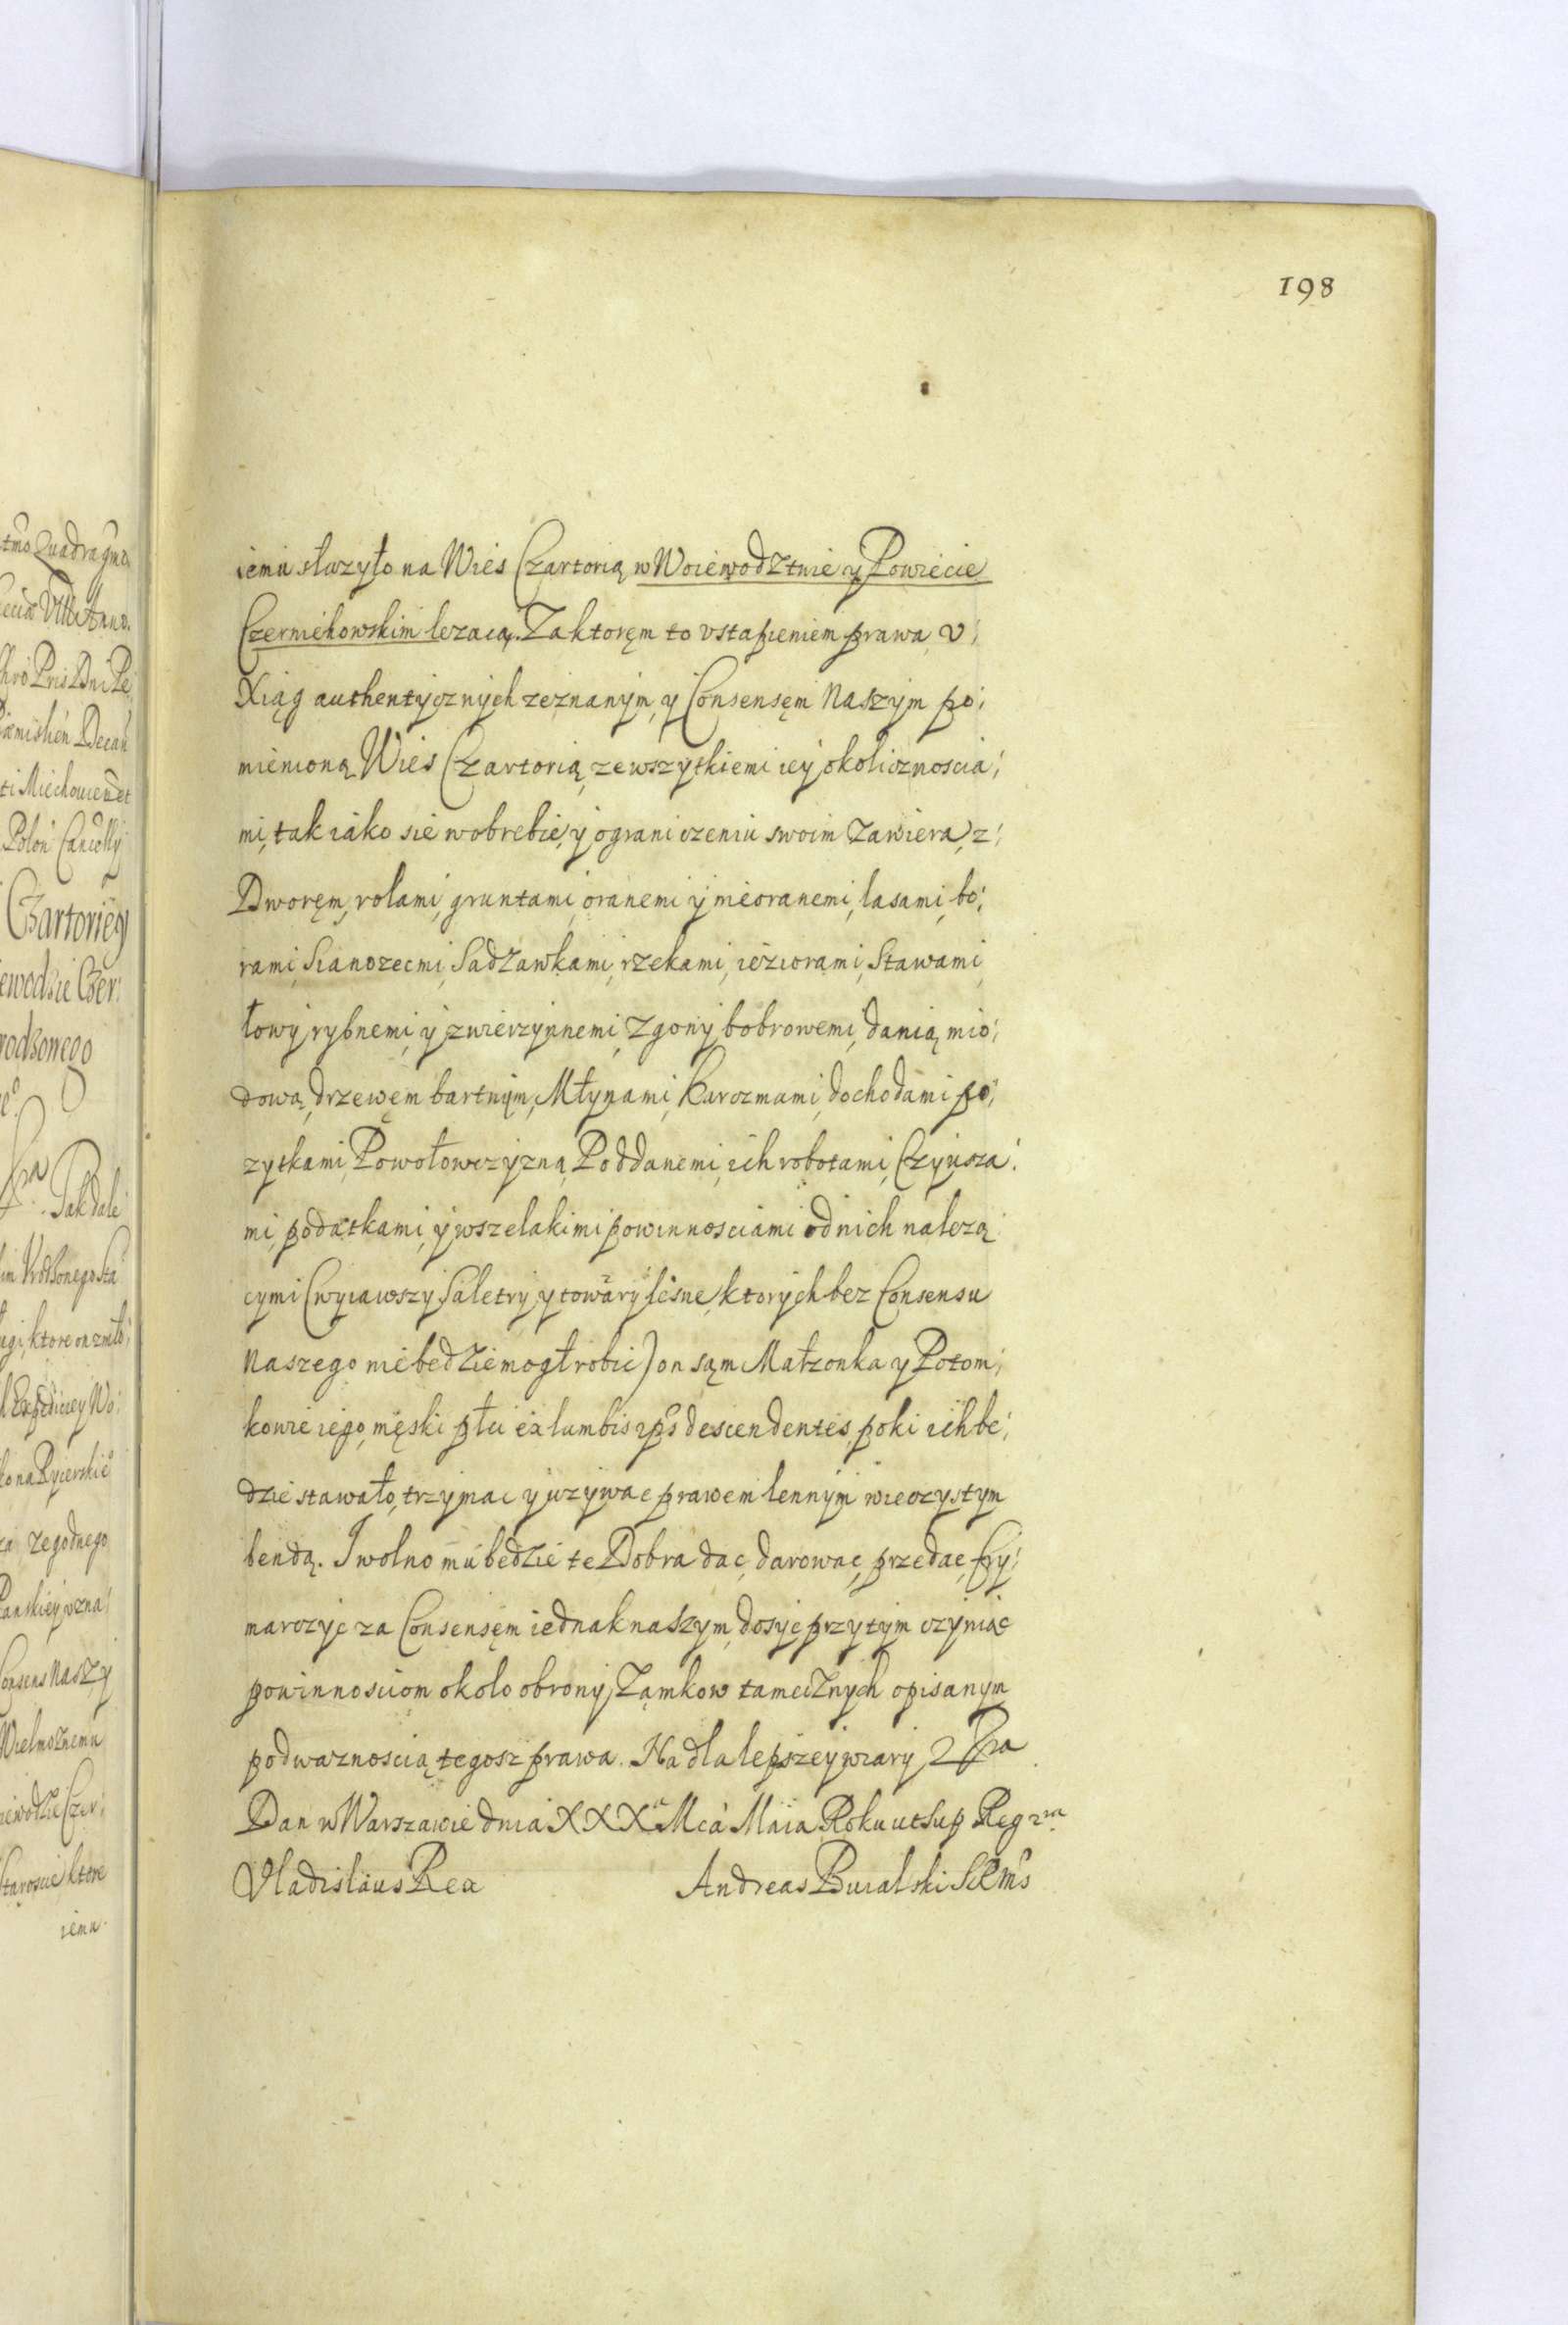 198
iemu słuzyło na Wies Czartorią w Woiewodztwie y Powiecie
Czerniehowskim lezacą. Za ktoręm to vstąpieniem prawa, v
Xiąg authentycznych zeznanym, y Consensęm Naszym po:
mienioną Wies Czartorią, ze wszytkiemi iey okolicznoscia:
mi, tak iáko sie w obrebie, y ograniczeniu swoim zawiera, z:
Dworęm, rolami, gruntami, oranemi y nieoranemi, lasami, bo:
rami, Sianozecmi, Sadzawkami, rzekami, ieziorami, Stawami,
łowy rybnemi, y zwierzynnemi, Zgony bobrowemi, danią mio:
dową, drzewęm bartnym, Młynami, Karczmami, dochodami po:
zytkami, Powołowczyzną, Poddanemi, ich robotami, Czynsza:
mi, podątkami, y wszelakimi powinnosciami od nich nalezą:
cymi (wyiawszy Saletry, y towary lesne, ktorych bez Consensu
Naszego nie bedzie mogł robic) on sąm Małzonka y Potom:
kowie iego, męski płci ex lumbis ips descendentes, poki ich be:
dzie stawało, trzymac y uzywac prawem lennym wieczystym
bendą. I wolno mu bedzie te Dobra dac, darowac, przedac, fry:
marczyc za Consensęm iednak naszym, dosyc przy tym czyniąc
powinnosciom około obrony, Zamkow tamecznych opisanym
pod waznoscią tegosz prawa. Na dla lepszey wiary
Dan w Warszawie dnia XXX Mca Maia Roku ut sup Reg
Vladislaus Rex Andreas Buialski
Quadragmo
Anno.
Decan
Polon
Czartoriey
Tak dale
ktore on
Wo:
zegodnego
Consens Naszy
Wielmoznemu
ktore
iemu